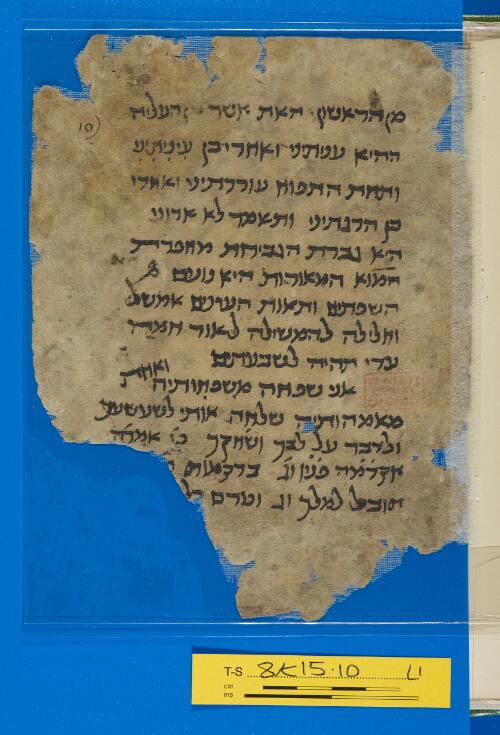 10
מן הראשון האת אשר העליה
ההיא עניתני ואחרי כן עיניתני
ותחת התפוח עוררתיני ואחרי
כן הרגתיני ותאמר לא ארוני
היא גברת הגבירות מחברת
המאורות היא נועם
השפתים ותאות העינים אמשל
וחלילה להמשילה לאור חמה
עדי תהיה לשבעתים
ואחת
אני שפחה משפחותיה
מאמהותיה שלחה אותי לשעשעך
ולדבר על לבך ושחקך כי אמרה
אקדמה פניו וג׳ ברקמות
תובל למלך וג׳ וטרם
T-S 8K15.10 L1
cm
ins